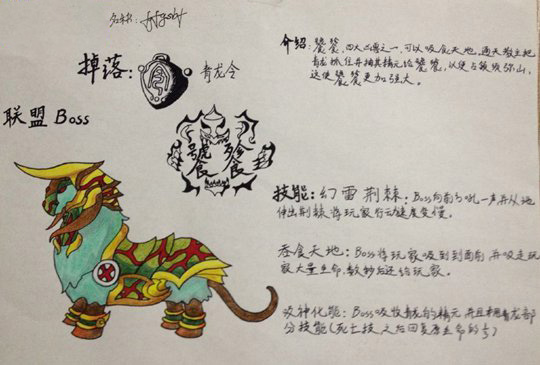 名称:
掉落: 青龙令
联盟 Boss
號虎食 殄食
介绍: 饕餮,四大凶兽之一,可以吸食天地。通天教主把
青龙抓住并抽其精元给饕餮,以便占领须弥山,
这使饕餮更加强大。
技能: 幻雷荆棘: Boss向前方吼一声并从地
伸出荆棘将玩家行动速度变慢。
吞食天地: Boss将玩家吸到到面前并吸走玩
家大量生命,数秒后还给玩家。
吸神化能: Boss吸收青龙的精元并且拥有青龙部
分技能(死亡技之后回复原生命的